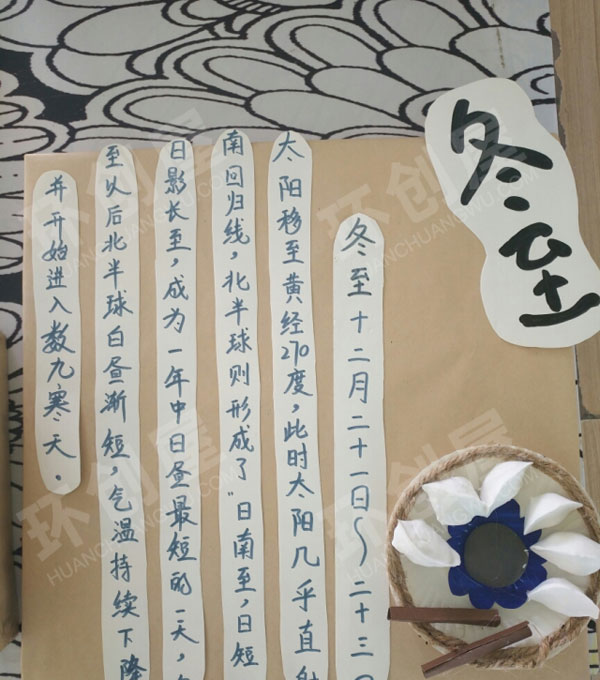 冬至
冬至十二月二十一日～二十三
太阳移至黄经270度，此时太阳几乎直射
南回归线，北半球则形成了“日南至，日短
日影长至，成为一年中日昼最短的一天，
至以后北半球白昼渐短，气温持续下降
并开始进入数九寒天。
环创屋
HUANCHUANGWU.COM
环创屋
HUANCHUANGWU.COM
环创屋
HUANCHUANGWU.COM
环创屋
HUANCHUANGWU.COM